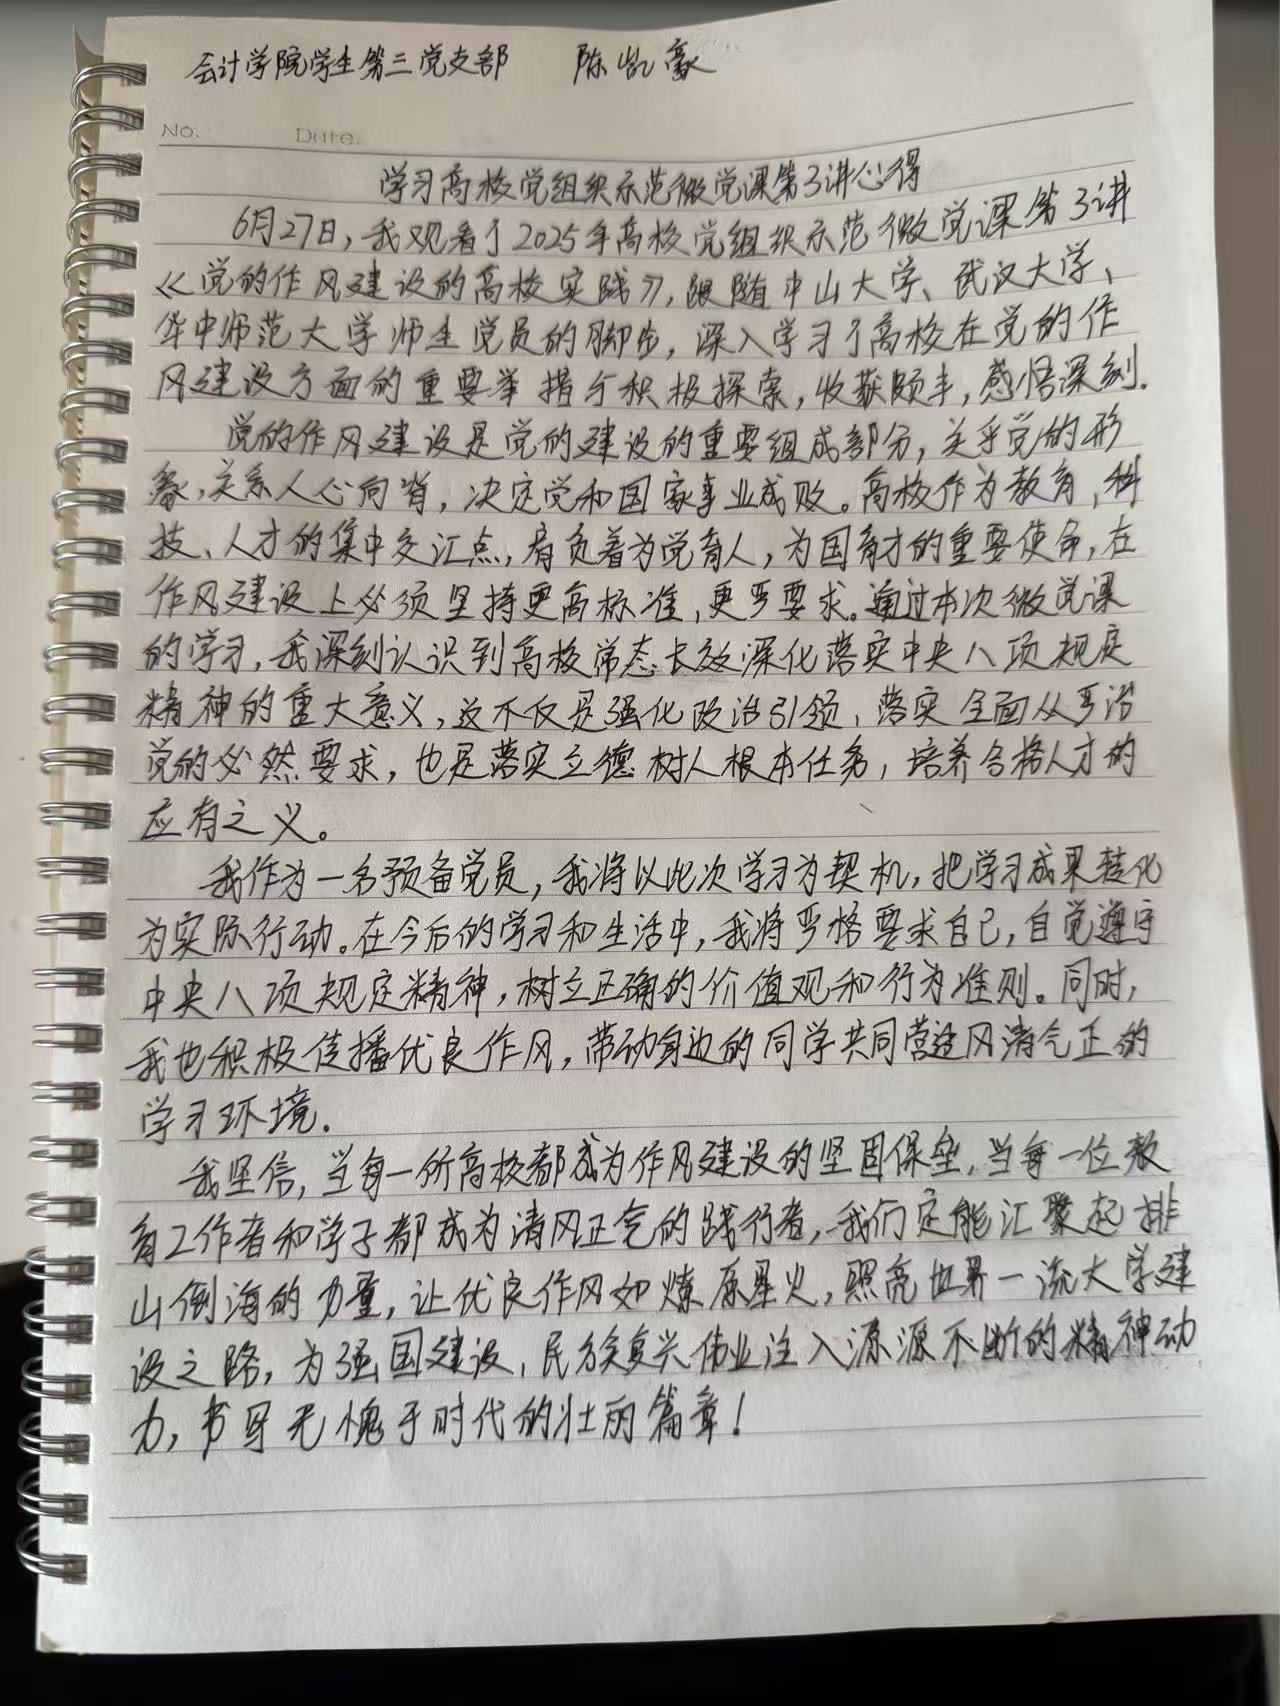 会计学院学生第三党支部 陈凯豪
No. Date.
学习高校党组织示范微党课第3讲心得
6月27日,我观看了2025年高校党组织示范微党课第3讲
《党的作风建设的高校实践》,跟随中山大学、武汉大学、
华中师范大学师生党员的脚步,深入学习了高校在党的作
风建设方面的重要举措与积极探索,收获颇丰,感悟深刻.
党的作风建设是党的建设的重要组成部分,关乎党的形
象,关系人心向背,决定党和国家事业成败。高校作为教育、科
技、人才的集中交汇点,肩负着为党育人,为国育才的重要使命,在
作风建设上必须坚持更高标准,更严要求。通过本次微党课
的学习,我深刻认识到高校常态长效深化落实中央八项规定
精神的重大意义,这不仅是强化政治引领、落实全面从严治
党的必然要求,也是落实立德树人根本任务,培养合格人才的
应有之义。
我作为一名预备党员,我将以此次学习为契机,把学习成果转化
为实际行动。在今后的学习和生活中,我将严格要求自己,自觉遵守
中央八项规定精神,树立正确的价值观和行为准则。同时,
我也积极传播优良作风,带动身边的同学共同营造风清气正的
学习环境.
我坚信,当每一所高校都成为作风建设的坚固保垒,当每一位教
育工作者和学子都成为清风正气的践行者,我们定能汇聚起排
山倒海的力量,让优良作风如燎原星火,照亮世界一流大学建
设之路,为强国建设、民族复兴伟业注入源源不断的精神动
力,书写无愧于时代的壮丽篇章!